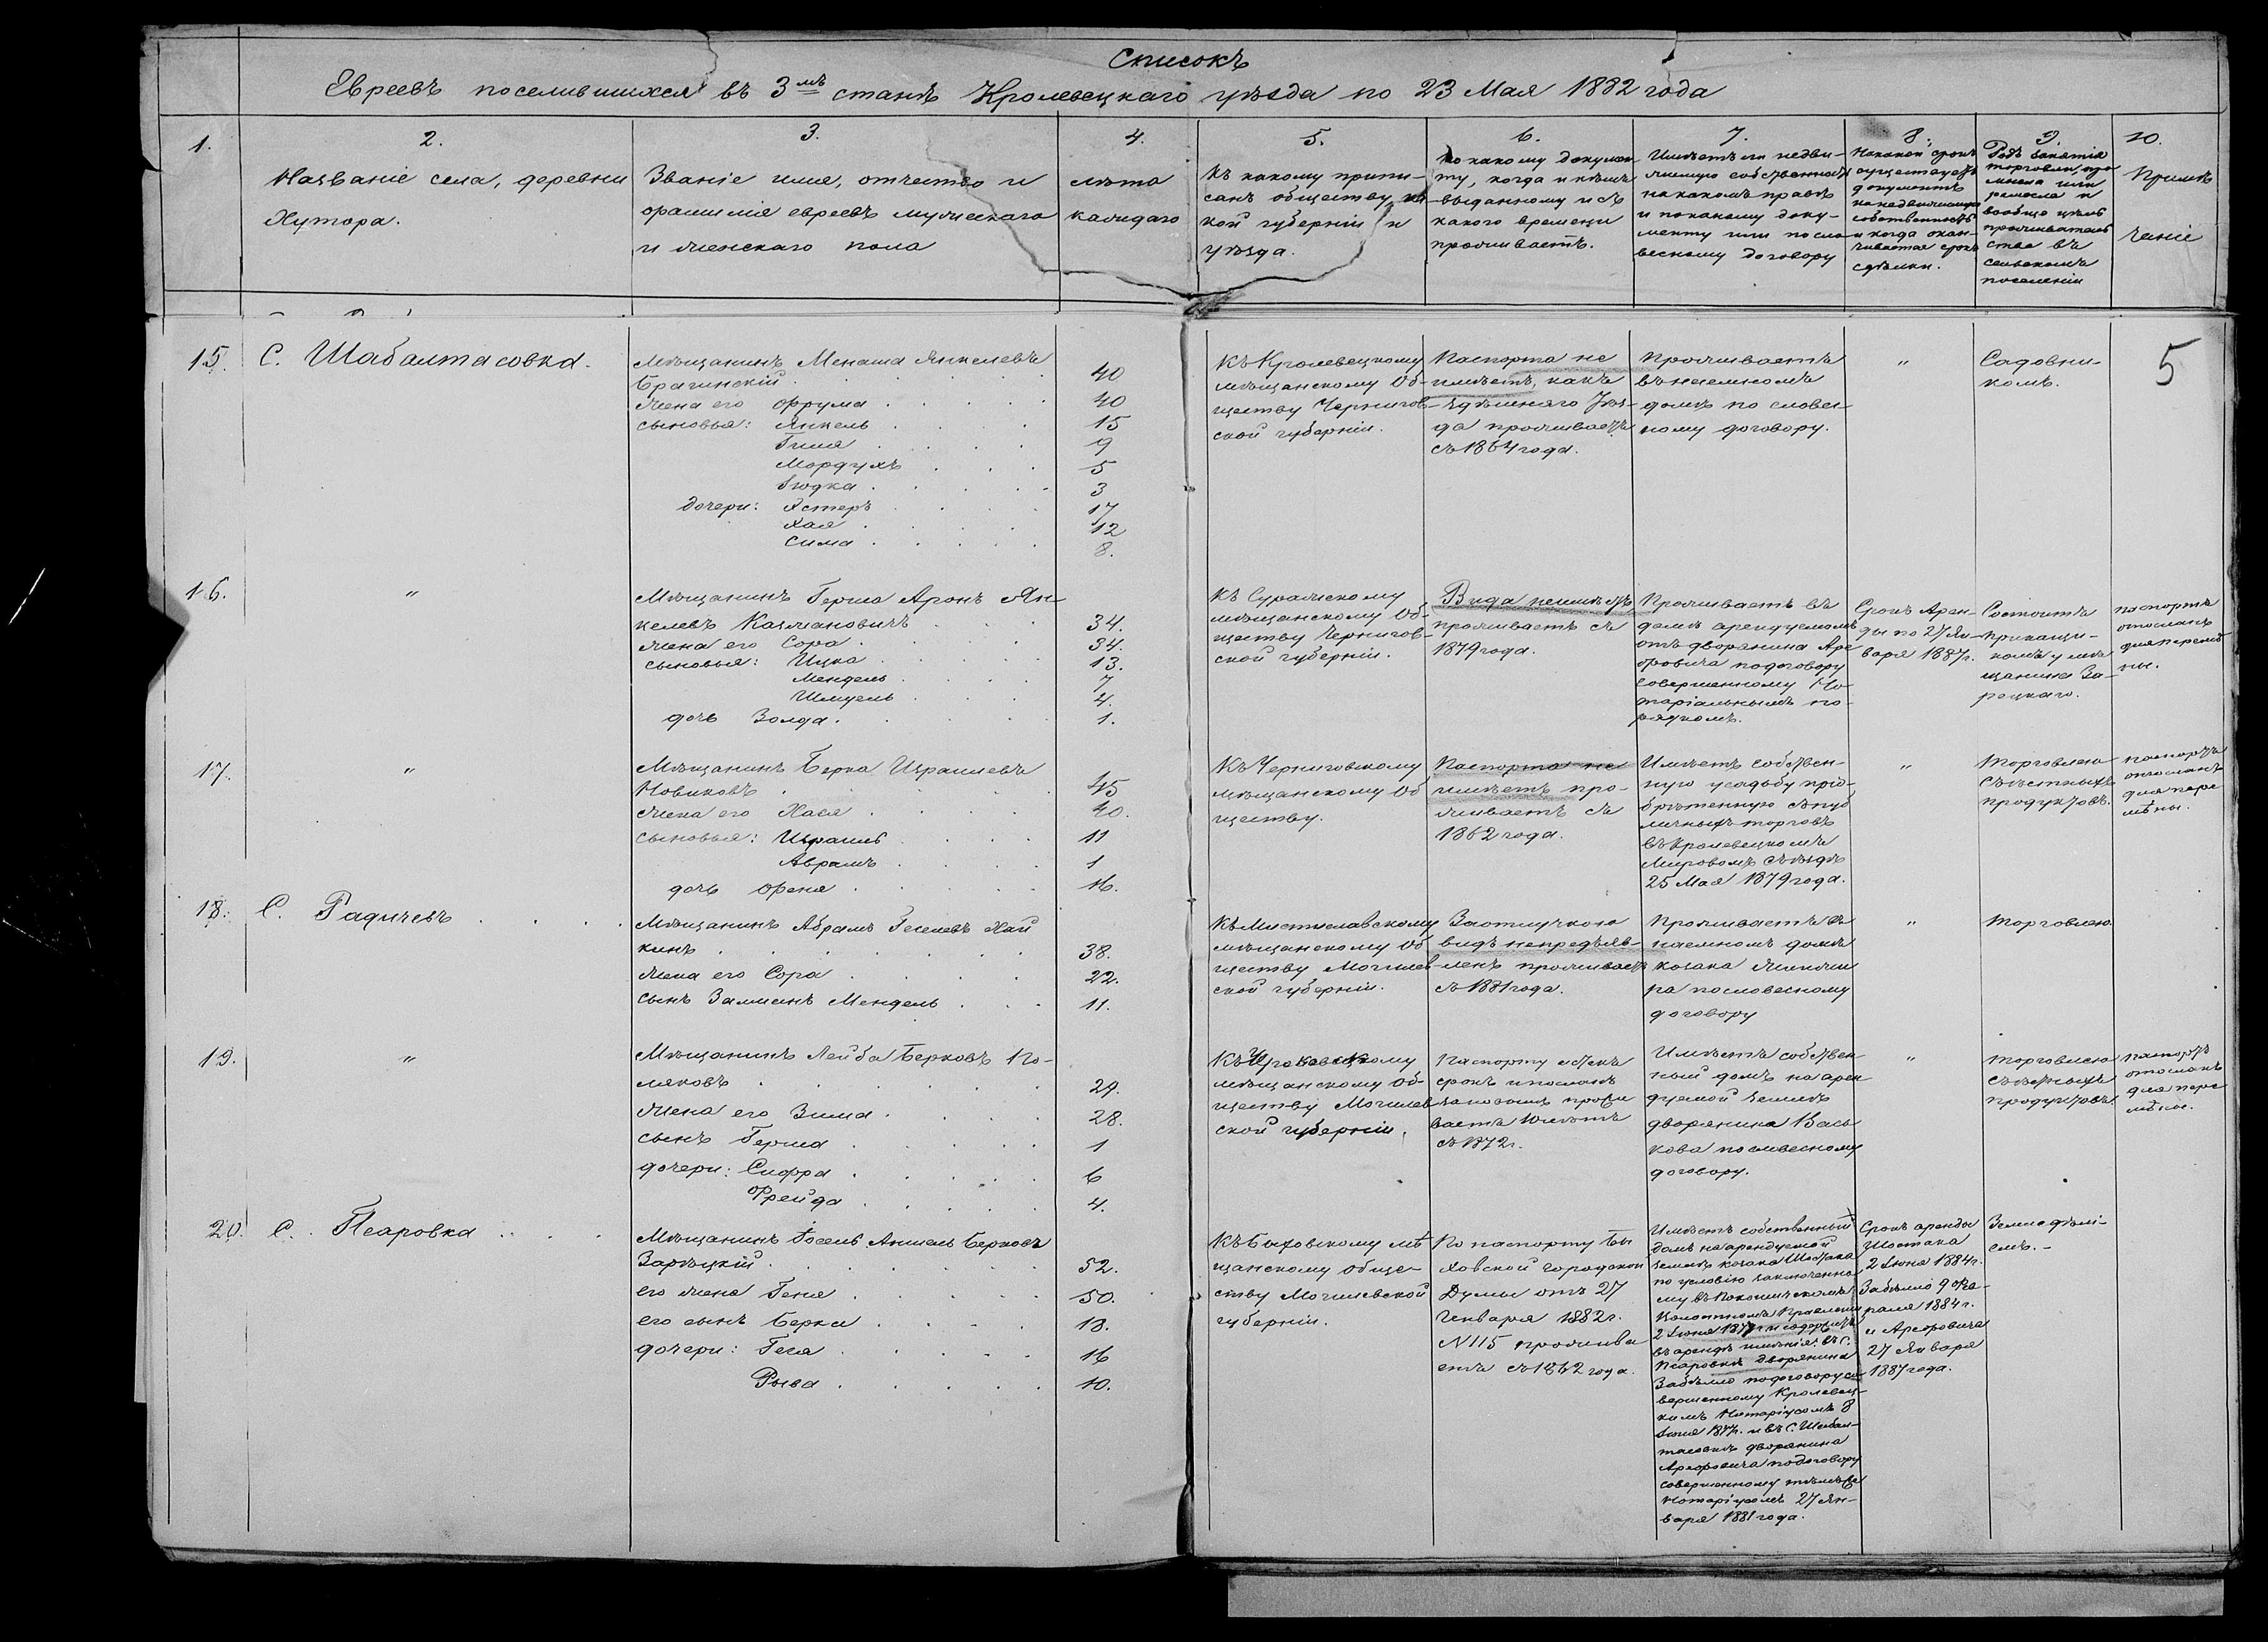 Списокъ
Евреевъ поселившихся въ 3мъ станѣ Кролевецкаго уѣзда по 23 Мая 1882 года
1.
2.
Названіе села, деревни
Хутора.
3.
Званіе имя, отчество и
фамилія евреевъ мужескаго
и женскаго пола
4.
лѣта
каждаго
5.
Къ какому припи-
санъ обществу, ка
кой губерніи и
уѣзда.
6.
По какому докумен-
ту, когда и кѣмъ
выданному и съ
какого времени
проживаетъ.
7.
Имѣетъ ли недви-
жимую собственность
на какомъ правѣ
и по какому доку-
менту или по сло-
весному договору
8.
На какой срокъ
существуетъ
документъ
на недвижимую
собственность
и когда окан-
чивается срокъ
сдѣлки.
9.
Родъ занятія
торговли, про
мысла или
ремесла и
вообще цѣль
проживатель
ства въ
сельскомъ
поселеніи
10.
Примѣ
чаніе
5
15.
С. Шабалтасовка.
Мѣщанинъ Менаша Янкелевъ
Брагинскій
40
жена его Фрума
40
сыновья: Янкель
15
Гиля
9
Мордухъ
5
Іюдка
3
дочери: Эстеръ
17
Хая
12
Сима
8.
Къ Кролевецкому
мѣщанскому Об-
ществу Чернигов-
ской губерніи.
Паспорта не
имѣетъ, какъ
здѣшняго Уѣз-
да проживаетъ
съ 1864 года.
Проживаетъ
въ наемномъ
домѣ по словес-
ному договору.
"
Садовни-
комъ.
16.
"
Мѣщанинъ Герша Аронъ Ян
келевъ Казмановичъ
34.
жена его Сора
34.
сыновья: Ицка
13.
Мендель
7
Шмуель
4.
дочь Золда
1.
Къ Суражскому
мѣщанскому Об-
ществу Чернигов-
ской губерніи.
Вида неимѣетъ
проживаетъ съ
1879 года.
Проживаетъ въ
домѣ арендуемомъ
отъ дворянина Аре
фовича по договору
совершенному Но-
таріальнымъ по-
рядкомъ.
Срокъ Арен-
ды по 27 Ян-
варя 1887 г.
Состоитъ
прикащи-
комъ у мѣ
щанина За-
рецкаго.
паспортъ
отосланъ
для перемѣ
ны.
17.
"
Мѣщанинъ Берка Израилевъ
Новиковъ
45
жена его Хася
40.
сыновья: Израиль
11
Аврамъ
1
дочь Френя
16.
Къ Черниговскому
мѣщанскому Об
ществу.
Паспорта не
имѣетъ про-
живаетъ съ
1862 года.
Имѣетъ собствен-
ную усадьбу прiо-
брѣтенную съ пуб
личныхъ торговъ
въ Кролевецкомъ
Мировомъ Съѣздѣ
25 Мая 1879 года.
"
Торговлею
съѣстныхъ
продуктовъ.
паспортъ
отосланъ
для пере
мѣны.
18.
С. Радичевъ
Мѣщанинъ Абрамъ Геселевъ Хай
кинъ
38.
жена его Сора
22.
сынъ Залманъ Мендель
11.
Къ Мстиславскому
мѣщанскому Об
ществу Могилев-
ской губерніи.
За отлучкою
видъ непредъяв-
ленъ проживаетъ
съ 1881 года.
Проживаетъ въ
наемномъ домѣ
козака
ра по словесному
договору
"
Торговлею
19.
"
Мѣщанинъ Лейба Берковъ По-
ляковъ
29.
жена его Зима
28.
сынъ Герша
1
дочери: Сифра
6
Фрейда
4.
мѣщанскому Об-
ществу Могилев
ской губерніи.
Паспорту истекъ
срокъ и посланъ
за новымъ прожи
ваетъ
съ 1872 г.
Имѣетъ собствен-
ный домъ на арен
дуемой землѣ
дворянина Вась
кова по словесному
договору.
"
Торговлею
съѣстныхъ
продуктовъ.
паспортъ
отосланъ
для пере
мѣны.
20.
С. Псаровка
Мѣщанинъ Іосель Аншель Берковъ
Зарѣцкій
52.
его жена Геня
50.
его сынъ Берка
18.
дочери: Геся
16
Рыва
10.
Къ Быховскому мѣ
щанскому обще-
ству Могилевской
губерніи.
По паспорту Бы
ховской городской
Думы отъ 27
Генваря 1882 г.
N 115 прожива
етъ съ 1862 года.
Имѣетъ собственный
домъ на арендуемой
землѣ козака Шостака
по условію заключенно
му въ Понорницкомъ
Волостномъ Правленіи
2 Іюня и содержитъ
въ арендѣ имѣнія: въ С.
Псаровкѣ дворянина
Забѣлло по договору со
вершенному Кролевец-
кимъ Нотаріусомъ 8
Іюня 1877 г. и въ С. Шабал-
тасовкѣ дворянина
Арефовича по договору
совершенному тѣмъ же
Нотаріусомъ 27 Ян-
варя 1881 года.
Срокъ аренды
Шостака
2 Іюня 1884 г.
Забѣлло 9 Фев-
раля 1884 г.
и Арефовича
27 Января
1887 года.
Земледѣлі-
емъ.-